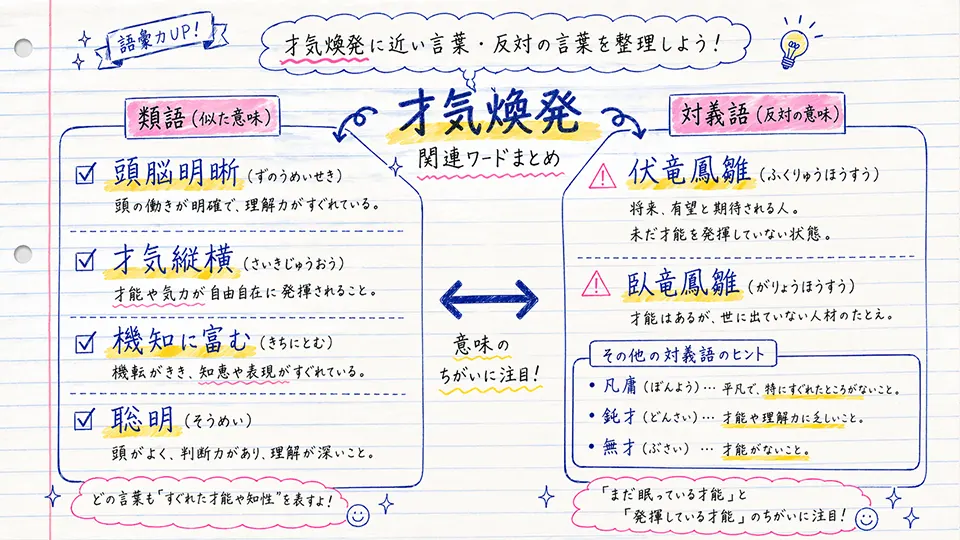 語彙力UP!
才気煥発に近い言葉・反対の言葉を整理しよう!
才気煥発
関連ワードまとめ
類語(似た意味)
頭脳明晰(ずのうめいせき)
頭の働きが明確で、理解力がすぐれている。
才気縦横(さいきじゅうおう)
才能や気力が自由自在に発揮されること。
機知に富む(きちにとむ)
機転がきき、知恵や表現がすぐれている。
聡明(そうめい)
頭がよく、判断力があり、理解が深いこと。
どの言葉も“すぐれた才能や知性”を表すよ!
意味の
ちがいに注目!
対義語(反対の意味)
伏竜鳳雛(ふくりゅうほうすう)
将来、有望と期待される人。
未だ才能を発揮していない状態。
臥竜鳳雛(がりょうほうすう)
才能はあるが、世に出ていない人材のたとえ。
その他の対義語のヒント
・凡庸(ぼんよう)… 平凡で、特にすぐれたところがないこと。
・鈍才(どんさい)… 才能や理解力に乏しいこと。
・無才(ぶさい) … 才能がないこと。
「まだ眠っている才能」と
「発揮している才能」のちがいに注目!